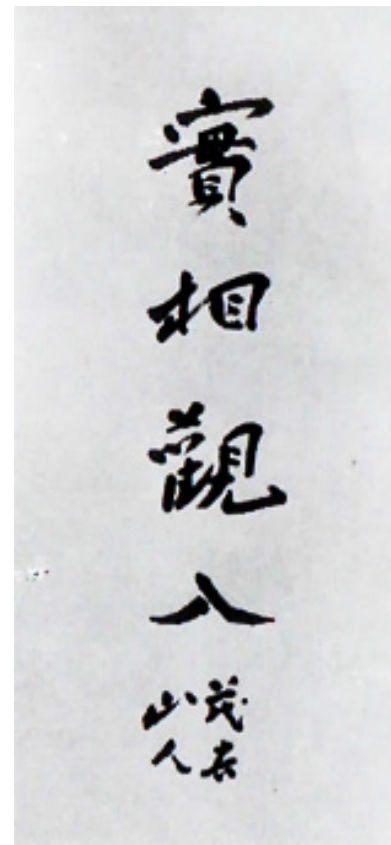 實相觀入
茂吉
山人